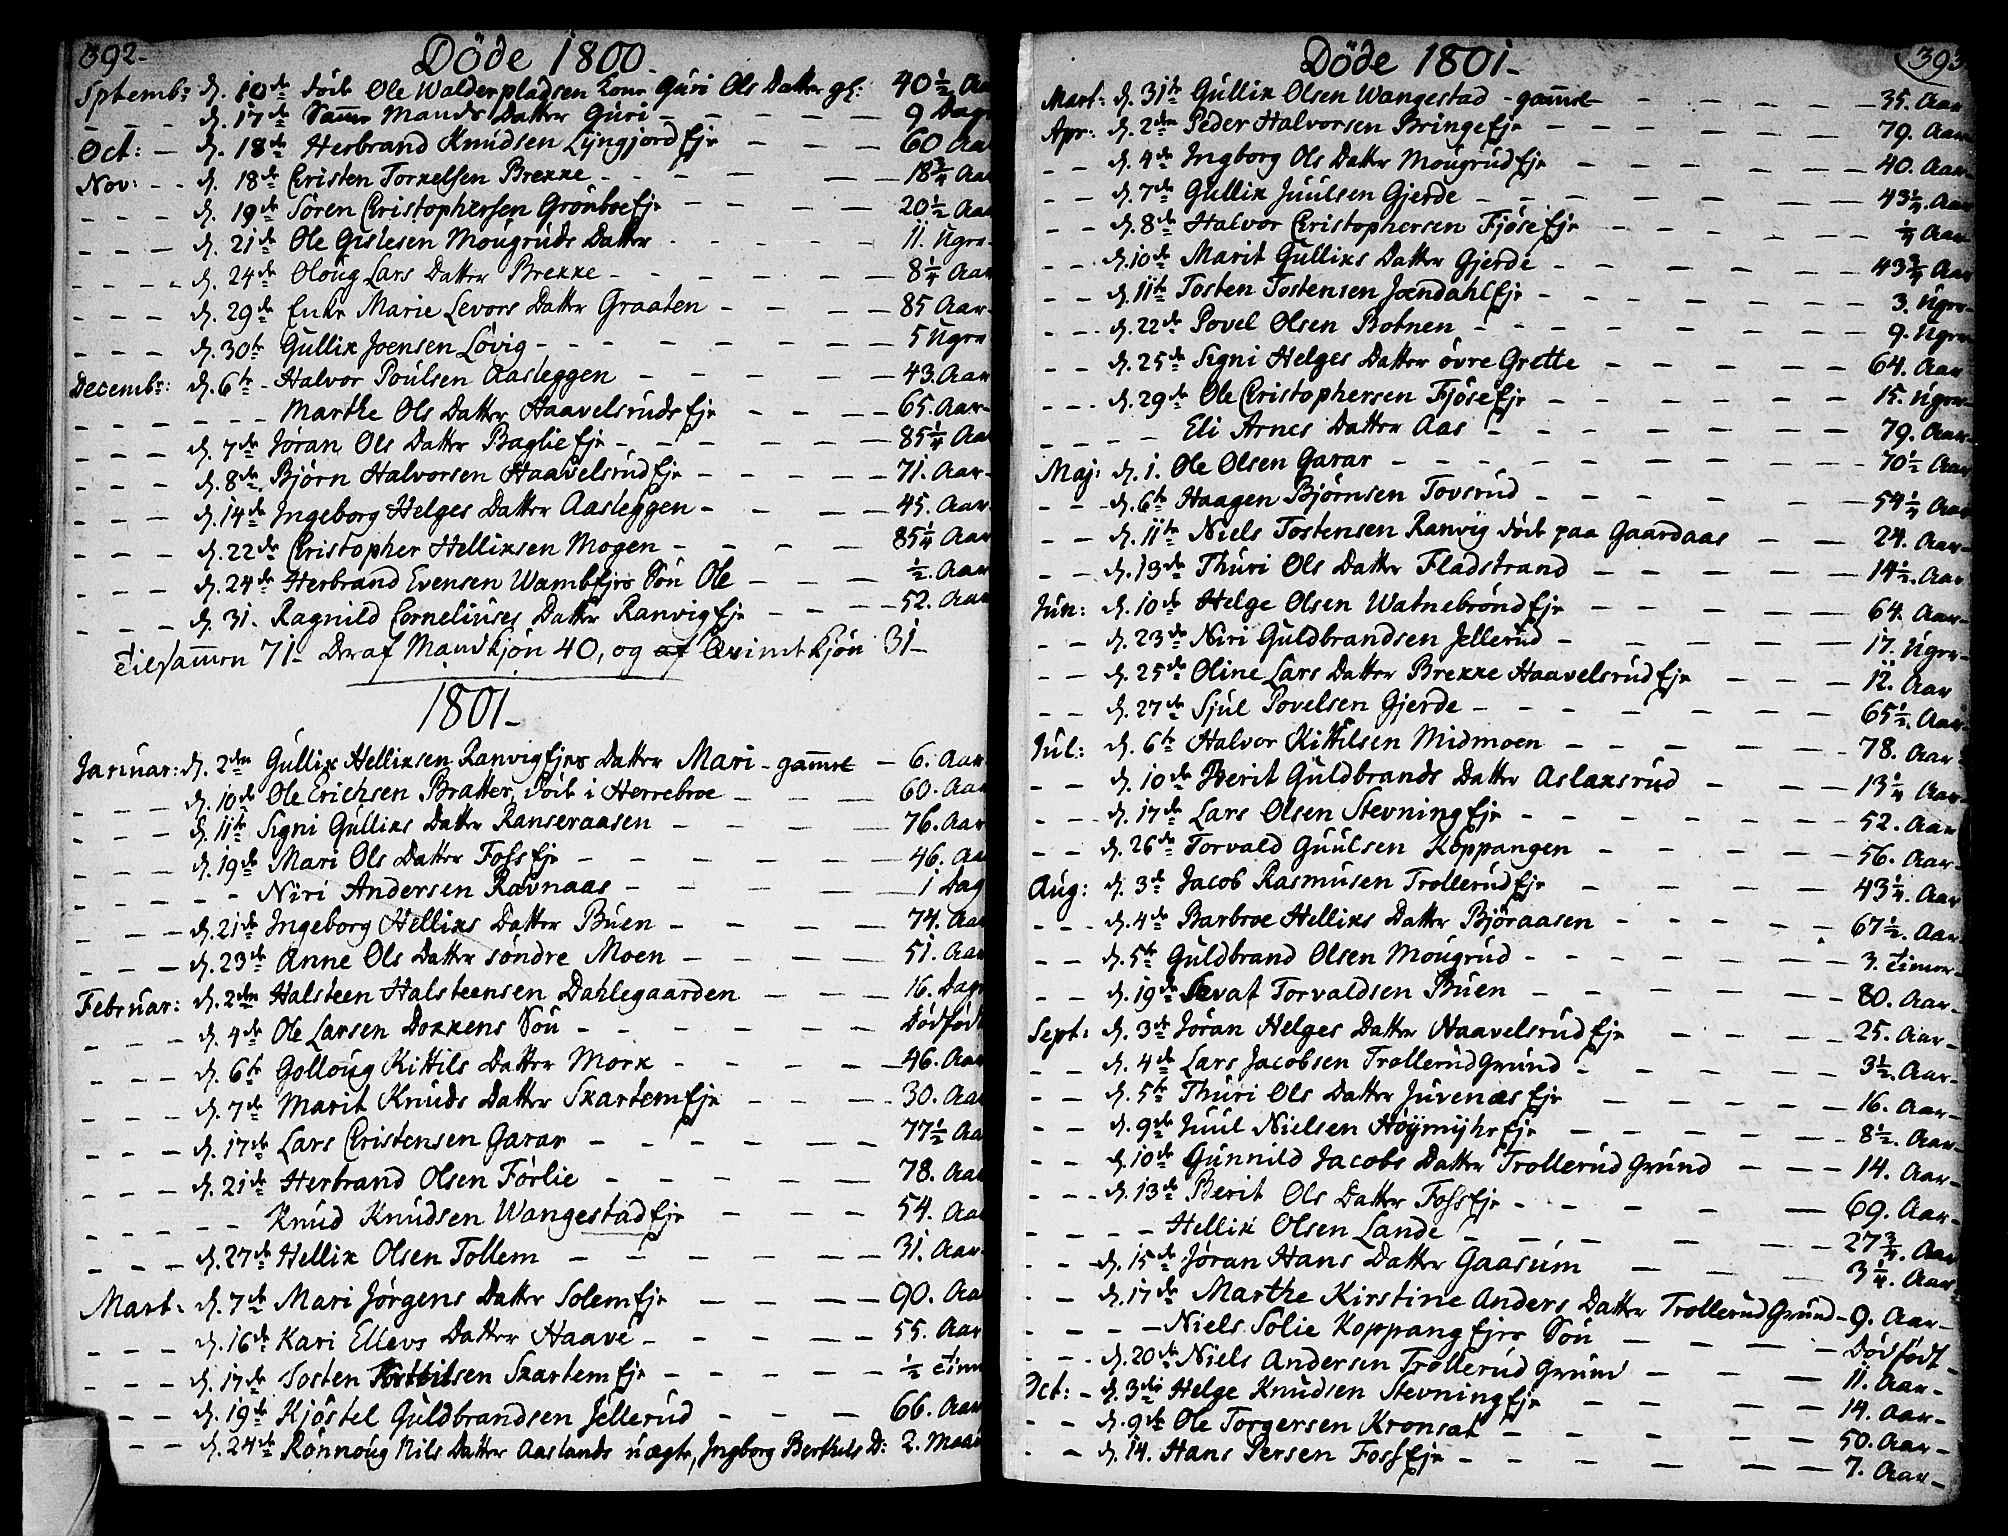 392.
Döde 1800.
Septembr: d. 10de döde Ole Walderpladsen Kone Guri Ols Datter gl: 40 1/2 Aa
- - - d. 17de Samme Mands Datter Guri - - - - 9 Dag
Oct: - d. 18de Herbrand Knudsen LyngjordEje - - - 60 Aa
Nov: - - d. 18de Christen Torkelsen Brekke - - - - 18 3/4 Aa
- - - d. 19de Sören Christophersen GrönboeEje - - - - 20 1/2 Aa
- - - d. 21de Ole Gislesen Mougruds Datter - - - - 11. Ugr
- - - - d. 24de Oloug Lars Datter Brekke - - - - 8 1/4 Aar
- - - d. 29de Enke Marie Levors Datter Graaten - - - - 85 Aar-
- - - d. 30te Gullik Joensen Lövig - - - - - 5 Ugra
Decembr: d. 6te - Halvor Poulsen Aasleggen - - - - 43. Aar
- - - - - - Marthe Ols Datter HaavelsrudsEje - - - - 65. Aar-
- - - d. 7de Jöran Ols Datter BaglieEje - - - - 85 1/4 Aa
- - - d. 8de Björn Halvorsen HaavelsrudEje - - - - 71. Aar-
- - - d. 14de Ingeborg Helges Datter Aasleggen - - - - 45. Aar-
- - - d. 22de Christopher Helliksen Mogen - - - - 85 1/4 Aar
- - - d. 24de Herbrand Evensen WambEjes Sön Ole - - - 1/2. Aar
- - - d. 31. Ragnild Corneliuses Datter RanvigEje - - - 52. Aar
Tilsammen 71- Deraf Mandkjön 40, og af Qvindekjön 31-
1801-
Januar: d. 2den Gullik Helliksen RanvigEjes Datter Mari - gammel - 6. Aar
- - - d. 10de Ole Erichsen Bratter, död i Herrebroe - - - 60. Aar
- - - d. 11te Signi Gulliks Datter Ranseraasen - - - - 76. Aar
- - - d. 19de Mari Ols Datter FossEje - - - - 46. Aa
- - - - - Niri Andersen Ravnaas - - - - 1 Dag
- - - d. 21de Ingeborg Helliks Datter Buen - - - - 74. Aar
- - - d. 23de Anne Ols Datter söndre Moen - - - - 51. Aar
Februar: d. 2den Halsteen Halsteensen Dahlegaarden - - - 16. Dage
- - - d. 4de Ole Larsen Dokkens Sön - - - - - Dödfödt
- - - d. 6te Golloug Kittils Datter Mork - - - - 46. Aar
- - - d. 7de Marit Knuds Datter SkartemEje - - - - 30. Aar
- - - d. 17de Lars Christensen Garar - - - - 77 1/2 Aa
- - - d. 21de Herbrand Olsen Förlie - - - - 78. Aar
- - - - - Knud Knudsen WangestadEje - - - - 54. Aa
- - - d. 27de Hellik Olsen Tollem - - - - 31. Aar-
Mart: d. 7de Mari Jörgens Datter SolemEje - - - - 90. Aa
- - - d. 16de Kari Ellevs Datter Haave - - - - 55. Aar
- - - d. 17de Tosten Kittilsen SkartemEje - - - - 1/2 Time
- - - d. 19de Kjöstel Guldbrandsen Jellerud - - - 66. Aar
- - - d. 24de Rönnoug Nils Datter Aaslands uægte, Ingborg Berthels D: 2. Maan
Döde 1801-
393
Mart: d. 31te Gullik Olsen Wangestad - gammel - - - - 35. Aar
Apr: d. 2den Peder Halvorsen BringeEje - - - - 79. Aar
- - d. 4de Ingborg Ols Datter MougrudEje - - - - 40. Aar-
- - d. 7de Gullik Juulsen Gjerde - - - - 43 1/4. Aar
- - d. 8de Halvor Christophersen FjöseEje - - - - 1/4 Aar
- - d. 10de Marit Gulliks Datter Gjerde - - - - 43 3/4 Aar
- - d. 11te Tosten Tostensen JoendahlEje - - - - 3. Ugr-
- - d. 22de Povel Olsen Botnen - - - - 9. Ugr-
- - d. 25de Signi Helges Datter övre Grette - - - - 64. Aar
- - - d. 29de Ole Christophersen FjöseEje - - - - 15. Ugr-
- - - - Eli Arnes Datter Aas - - - - 79. Aar-
Maj: d. 1. Ole Olsen Garar - - - - 70 1/2 Aar
- - - d. 6te Haagen Björnsen Tovsrud - - - - 54 1/4 Aar
- - d. 11te Niels Tostensen Ranvig död paa Gaardaas - - 24. Aar-
- - d. 13de Thuri Ols Datter Fladstrand - - - - 14 1/2. Aar
Jun: d. 10de Helge Olsen WatnebröndEje - - - - 64. Aar-
- - d. 23de Niri Guldbrandsen Jellerud - - - - 17. Ugr-
- - d. 25de Oline Lars Datter Brekke HaavelsrudEje - - - 12. Aar
- - d. 27de Sjul Povelsen Gjerde - - - - 65 1/2. Aar
Jul: d. 6te Halvor Kittilsen Midmoen - - - - 78. Aar
- - d. 10de Berit Guldbrands Datter Aslaksrud - - - 13 1/4 Aar
- - d. 17de Lars Olsen StevningEje - - - - 52. Aar
- - d. 26de Torvald Guulsen Koppangen - - - - 56. Aar-
Aug: d. 3de Jacob Rasmusen TrollerudEje - - - - 43 1/4. Aar
- - - d. 4de Barbroe Helliks Datter Björaasen - - - - 67 1/2. Aar-
- - d. 5te Guldbrand Olsen Mougrud - - - - 3. Timer-
- - d. 19de Sevat Torvaldsen Buen - - - - 80. Aar-
Sept: d. 3de Jöran Helges Datter HaavelsrudEje - - - - 25. Aar-
- - d. 4de Lars Jacobsen TrollerudGrund - - - - 3 1/2. Aar-
- - d. 5te Thuri Ols Datter JuvenæsEje - - - - 16. Aar-
- - d. 9de Juul Nielsen HöymyhrEje - - - - 8 1/2. Aar-
- - d. 10de Gunnild Jacobs Datter TrollerudGrund - - - 14. Aar-
- - - d. 13de Berit Ols Datter FossEje - - - - 69. Aar-
- - - - Hellik Olsen Lande - - - - 27 3/4. Aar
- - d. 15de Jöran Hans Datter Gaasum - - - - 3 1/4. Aar
- - d. 17de Marthe Kirstine Anders Datter TrollerudGrund - 9. Aar-
- - - - Niels Solie KoppangEjes Sön - - - - Dödfödt-
- - d. 20de Niels Andersen TrollerudGrund - - - - 11. Aar-
Oct: - d. 3die Helge Knudsen StevningEje - - - - 14. Aar-
- - d. 9de Ole Torgersen Kronsat - - - - 50. Aar-
- - d. 14. Hans Persen FossEje - - - - 7. Aar-